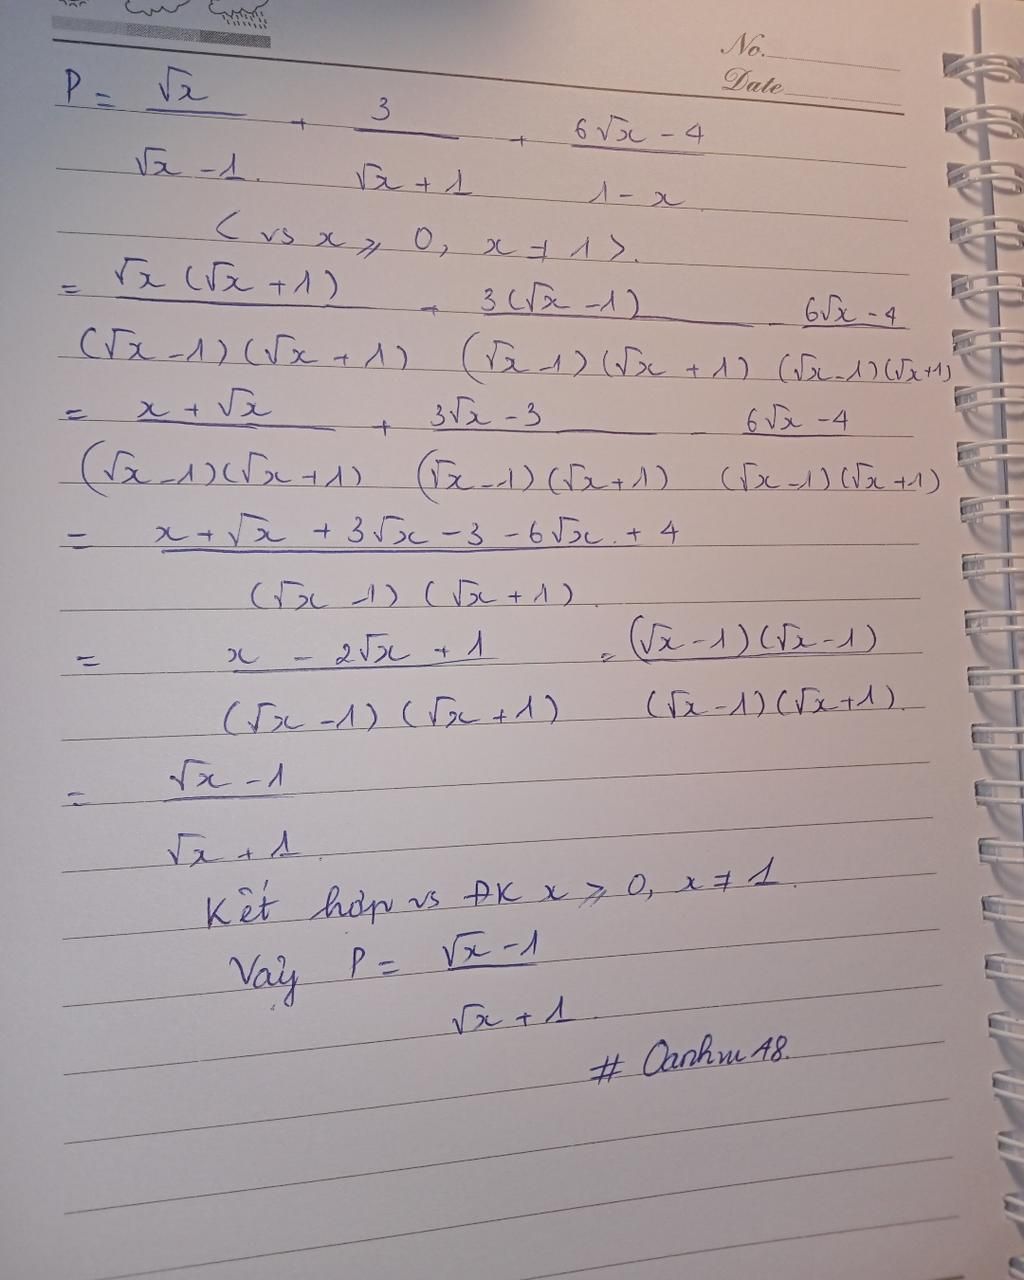 No.
Date
P = √x / (√x - 1) + 3 / (√x + 1) + (6√x - 4) / (1 - x)
( vs x ⩾ 0, x ≠ 1 ).
= √x (√x + 1) / (√x - 1)(√x + 1) + 3(√x - 1) / (√x - 1)(√x + 1) - (6√x - 4) / (√x - 1)(√x + 1)
= (x + √x) / (√x - 1)(√x + 1) + (3√x - 3) / (√x - 1)(√x + 1) - (6√x - 4) / (√x - 1)(√x + 1)
= (x + √x + 3√x - 3 - 6√x + 4) / (√x - 1)(√x + 1)
= (x - 2√x + 1) / (√x - 1)(√x + 1) = (√x - 1)(√x - 1) / (√x - 1)(√x + 1)
= (√x - 1) / (√x + 1)
Kết hợp vs ĐK x ⩾ 0, x ≠ 1.
Vậy P = (√x - 1) / (√x + 1)